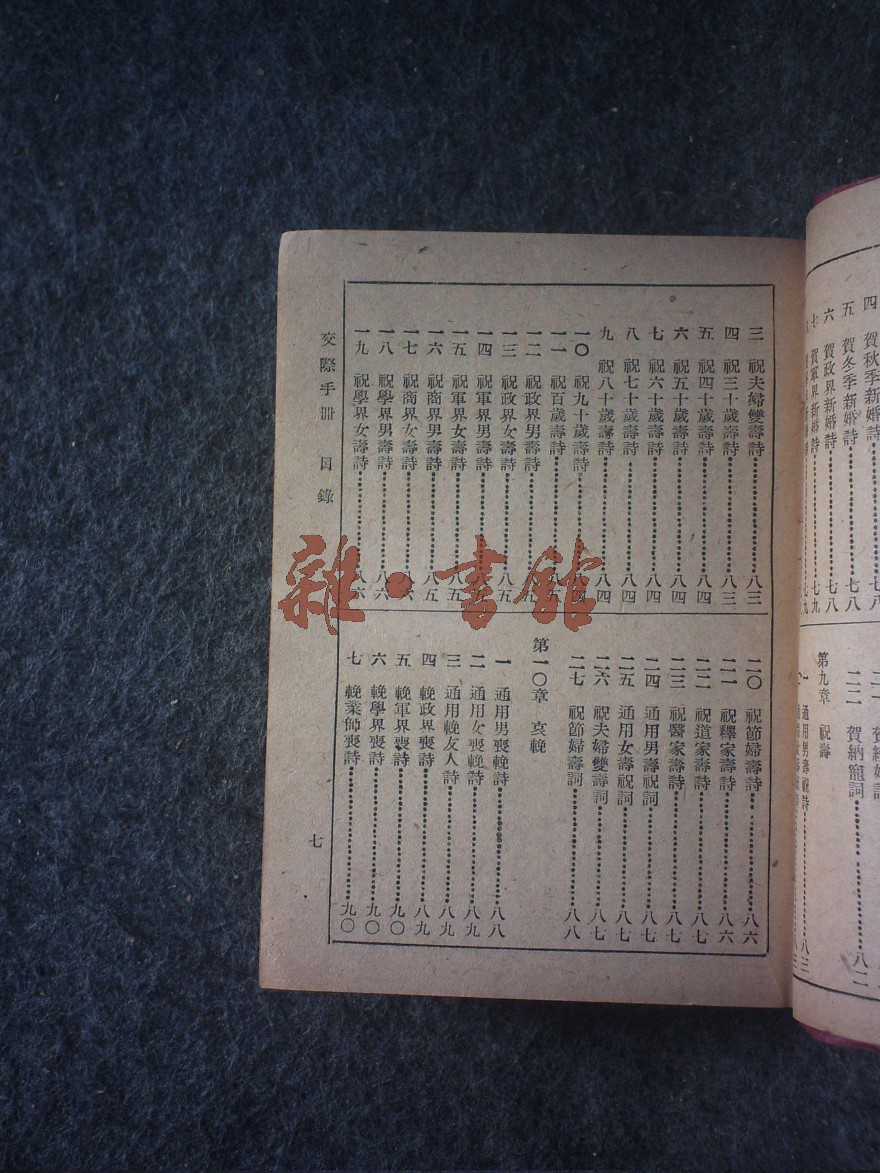 四 賀秋季新婚詩 七八
五 賀冬季新婚詩 七八
六 賀政界新婚詩 七八
七 賀軍界新婚詩 七九
二二 賀納寵詞 八二
第九章 祝壽
一 通用男壽祝詩 八三
三 祝夫婦雙壽詩 八三
四 祝三十歲壽詩 八三
五 祝四十歲壽詩 八四
六 祝五十歲壽詩 八四
七 祝六十歲壽詩 八四
八 祝七十歲壽詩 八四
九 祝八十歲壽詩 八四
一〇 祝九十歲壽詩 八四
一一 祝百歲壽詩 八五
一二 祝政界男壽詩 八五
一三 祝政界女壽詩 八五
一四 祝軍界男壽詩 八五
一五 祝軍界女壽詩 八五
一六 祝商界男壽詩 八五
一七 祝商界女壽詩 八六
一八 祝學界男壽詩 八六
一九 祝學界女壽詩 八六
二〇 祝節婦壽詩 八六
二一 祝釋家壽詩 八六
二二 祝道家壽詩 八七
二三 祝醫家壽詩 八七
二四 通用男壽祝詞 八七
二五 通用女壽祝詞 八七
二六 祝夫婦雙壽詞 八七
二七 祝節婦壽詞 八八
第一〇章 哀輓
一 通用男喪輓詩 八八
二 通用女喪輓詩 八九
三 通用輓友人詩 八九
四 輓政界喪詩 八九
五 輓軍界喪詩 九〇
六 輓學界喪詩 九〇
七 輓業師喪詩 九〇
交際手冊 目錄
七
雜·書館